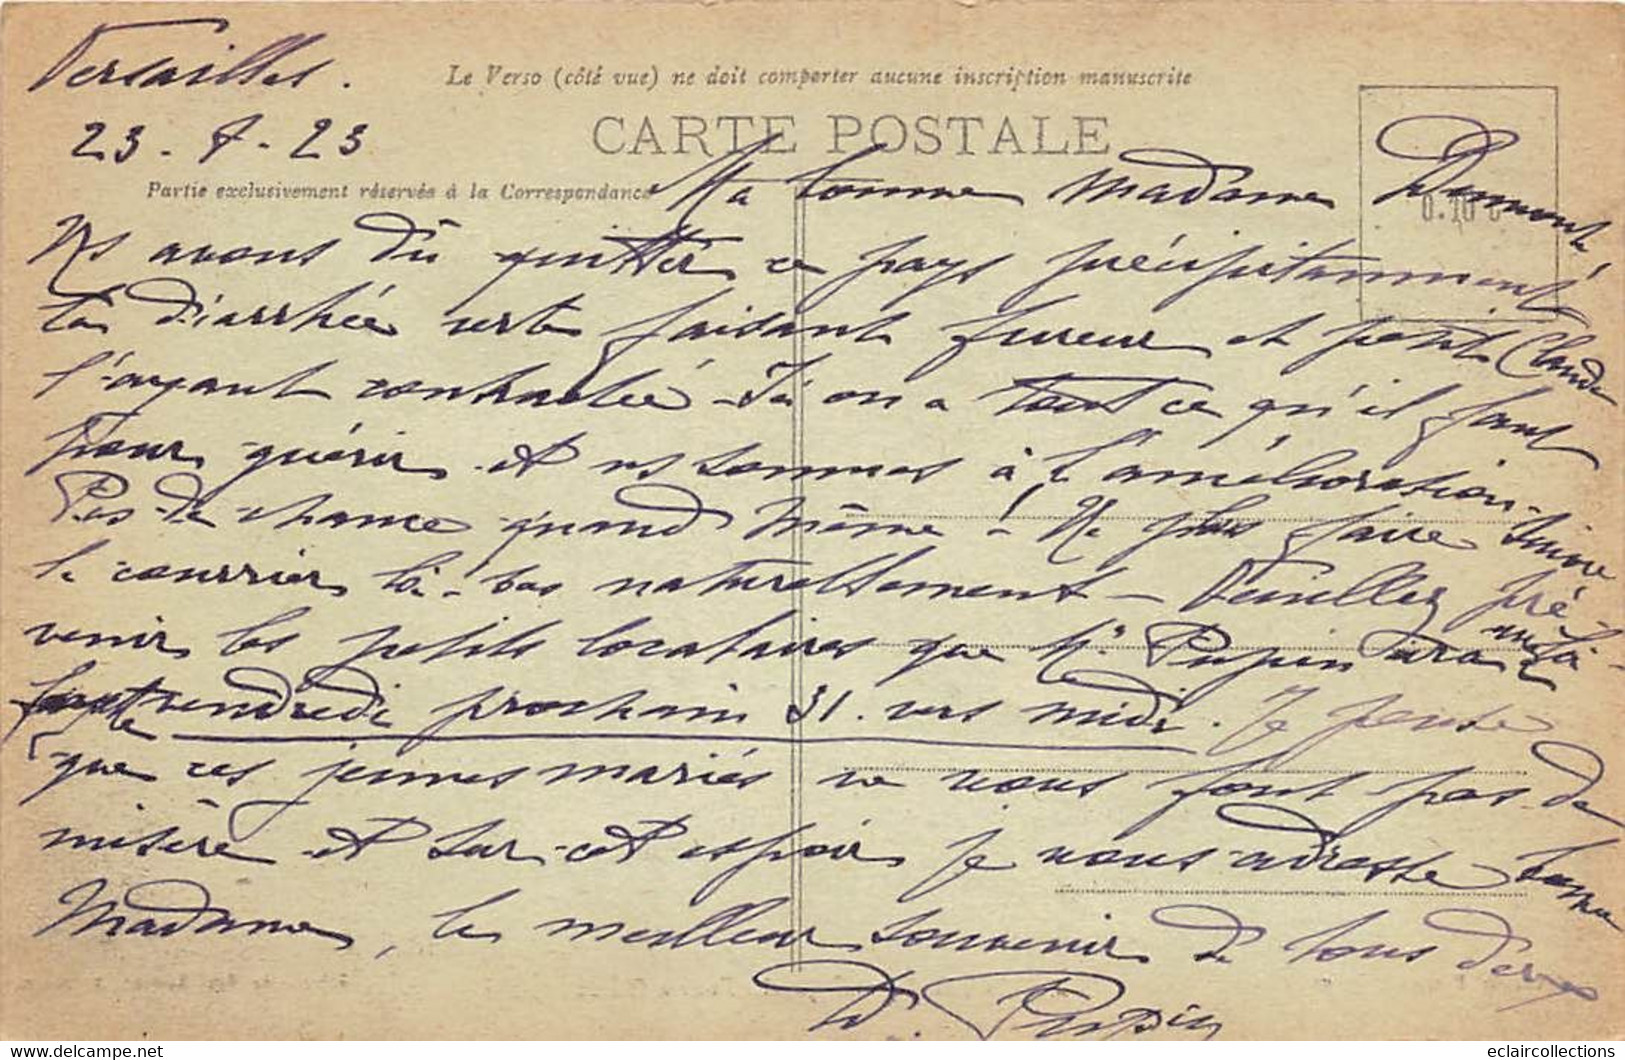 Versailles.
Le Verso (côté vue) ne doit comporter aucune inscription manuscrite
23-8-23
CARTE POSTALE
Partie exclusivement réservée à la Correspondance
Ma bonne Madame Dumont
0.10 c
Ns avons dû quitter ce pays précipitamment
la diarrhée verte faisant fureur et petit Claude
l'ayant contractée - Ici on a tout ce qu'il faut
pour guérir et ns sommes à l'amélioration -
Pas de chance quand même ! Ne plus faire suivre
le courrier là-bas naturellement - Veuillez pré-
venir les petits locataires que Mr Pupin ira
vendredi prochain 31. vers midi. Je pense
que ces jeunes mariés ne vous font pas de
misère et sur cet espoir je vous adresse bonne
Madame, le meilleur souvenir de tous
D. Pupin
eclaircollections